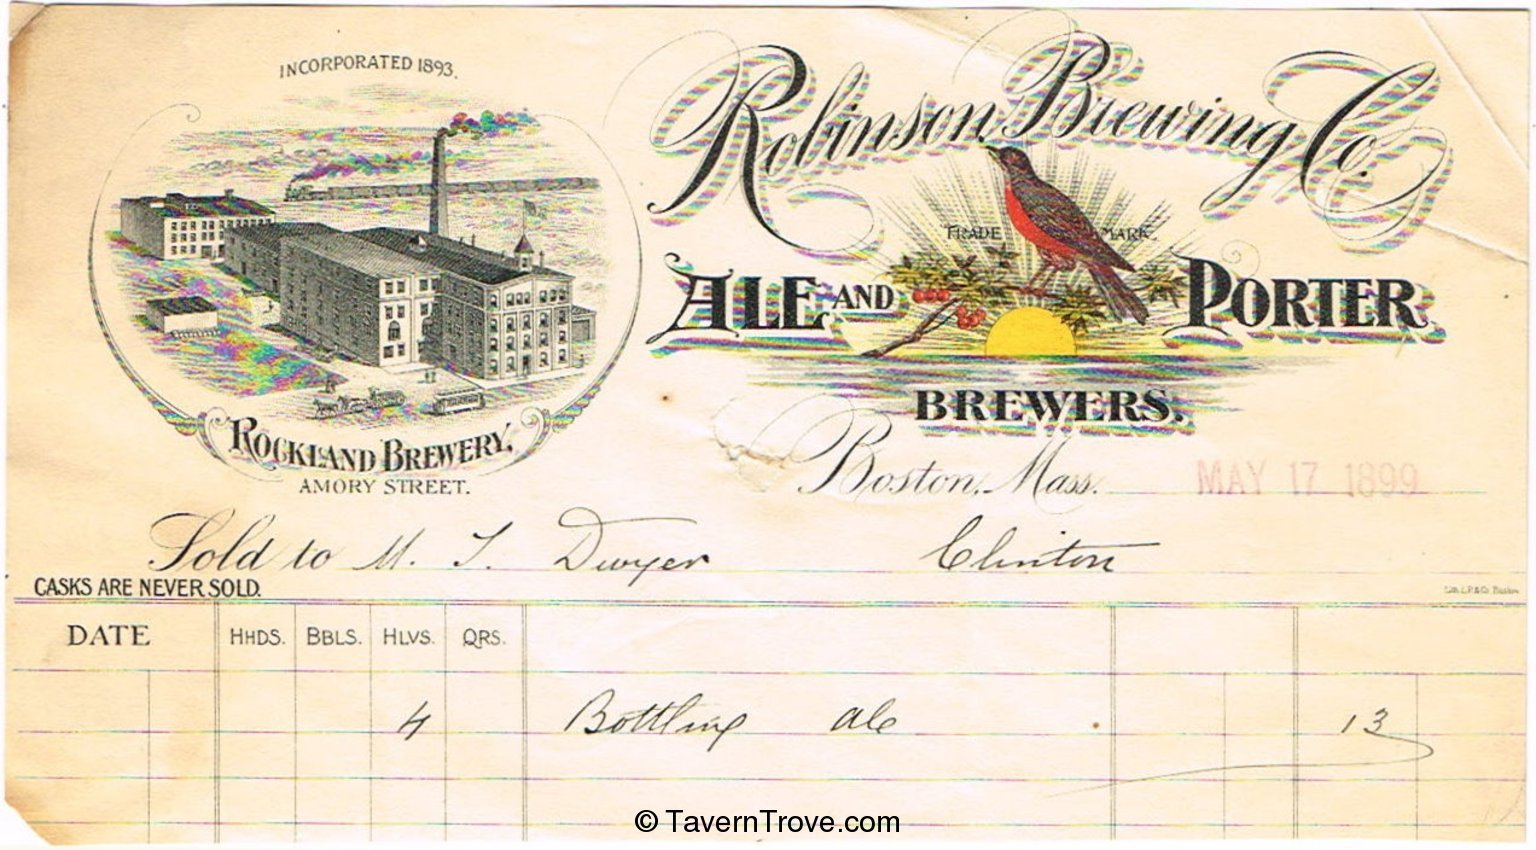 INCORPORATED 1893.
Robinson Brewing Co.
TRADE MARK
ALE AND PORTER
BREWERS.
ROCKLAND BREWERY,
AMORY STREET.
Boston, Mass. MAY 17 1899
Sold to M. T. Dwyer Clinton
CASKS ARE NEVER SOLD.
DATE HHDS. BBLS. HLVS. QRS.
4 Bottling ale 13
© TavernTrove.com